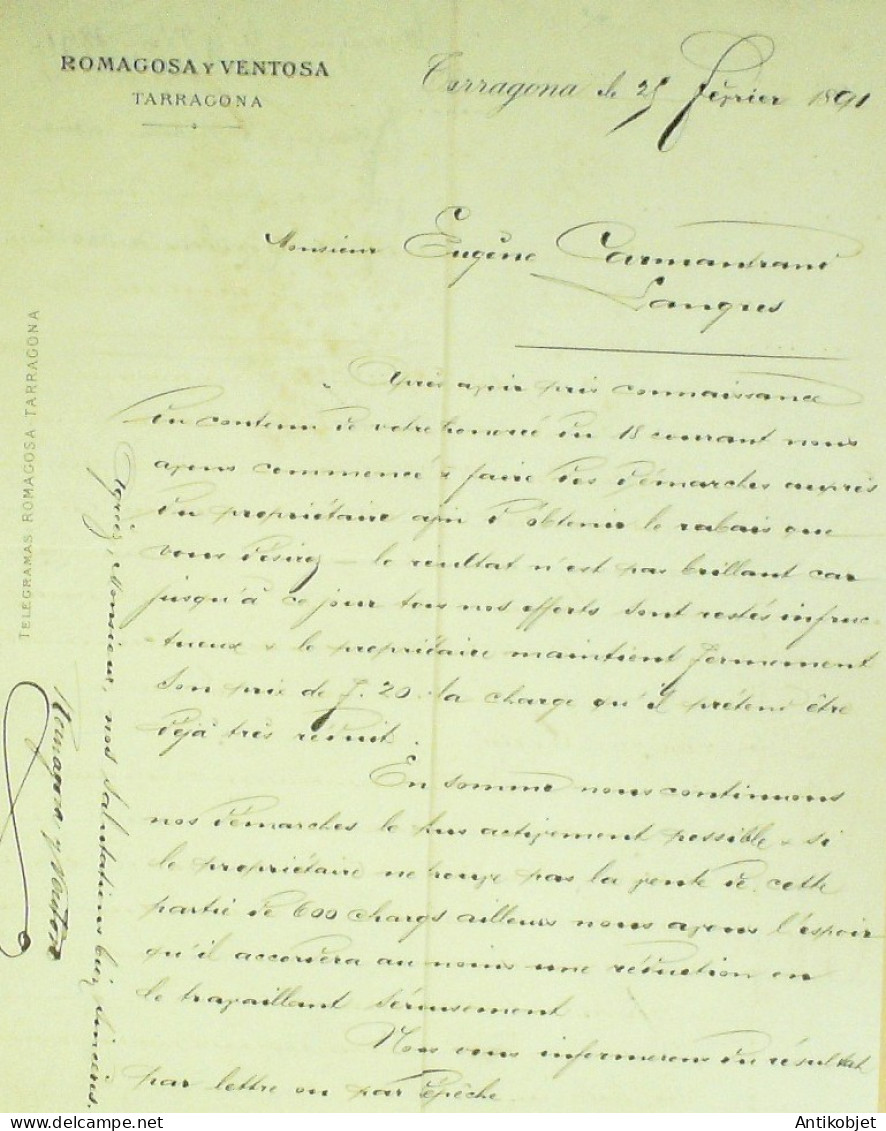 ROMAGOSA Y VENTOSA
TARRAGONA
Tarragona le 25 Février 1891
Monsieur Eugène Carmantrant
Langres
Après avoir pris connaissance
du contenu de votre honorée du 18 courant nous
avons commencé à faire des démarches auprès
du propriétaire afin d'obtenir le rabais que
vous désirez – le résultat n'est pas brillant car
jusqu'à ce jour tous nos efforts sont restés infruc-
tueux & le propriétaire maintient fermement
son prix de f. 20. la charge qu'il prétend être
déjà très réduit.
En somme nous continuons
nos démarches le plus activement possible & si
le propriétaire ne trouve pas la vente de cette
partie de 600 charges ailleurs nous avons l'espoir
qu'il accordera au moins une réduction en
le travaillant sérieusement.
Nous vous informerons du résultat
par lettre ou par dépêche.
Agréez, Monsieur, nos salutations bien sincères.
Romagosa y Ventosa
TELEGRAMAS ROMAGOSA TARRAGONA
Antikobjet